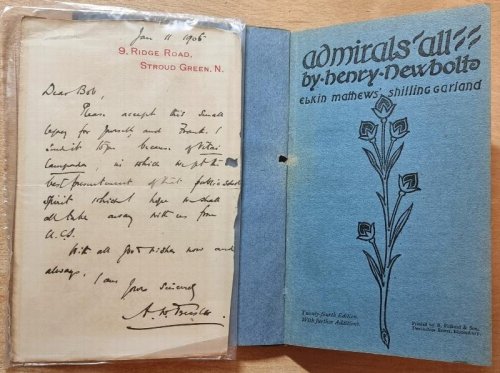 Jan 11 1906
9, RIDGE ROAD,
STROUD GREEN, N.
Dear Bob,
Please accept this small
legacy for yourself and Frank. I
send it to you because of Vitai
Lampada, in which we get the
best presentment of that public school
spirit which I hope we shall
all take away with us from
U.C.S.
With all good wishes now and
always, I am Yours Sincerely
admirals all
by henry newbolt
ELKIN MATHEWS' SHILLING GARLAND
Twenty-fourth Edition.
With further Additions.
Printed by R. Folkard & Son,
Devonshire Street, Bloomsbury.